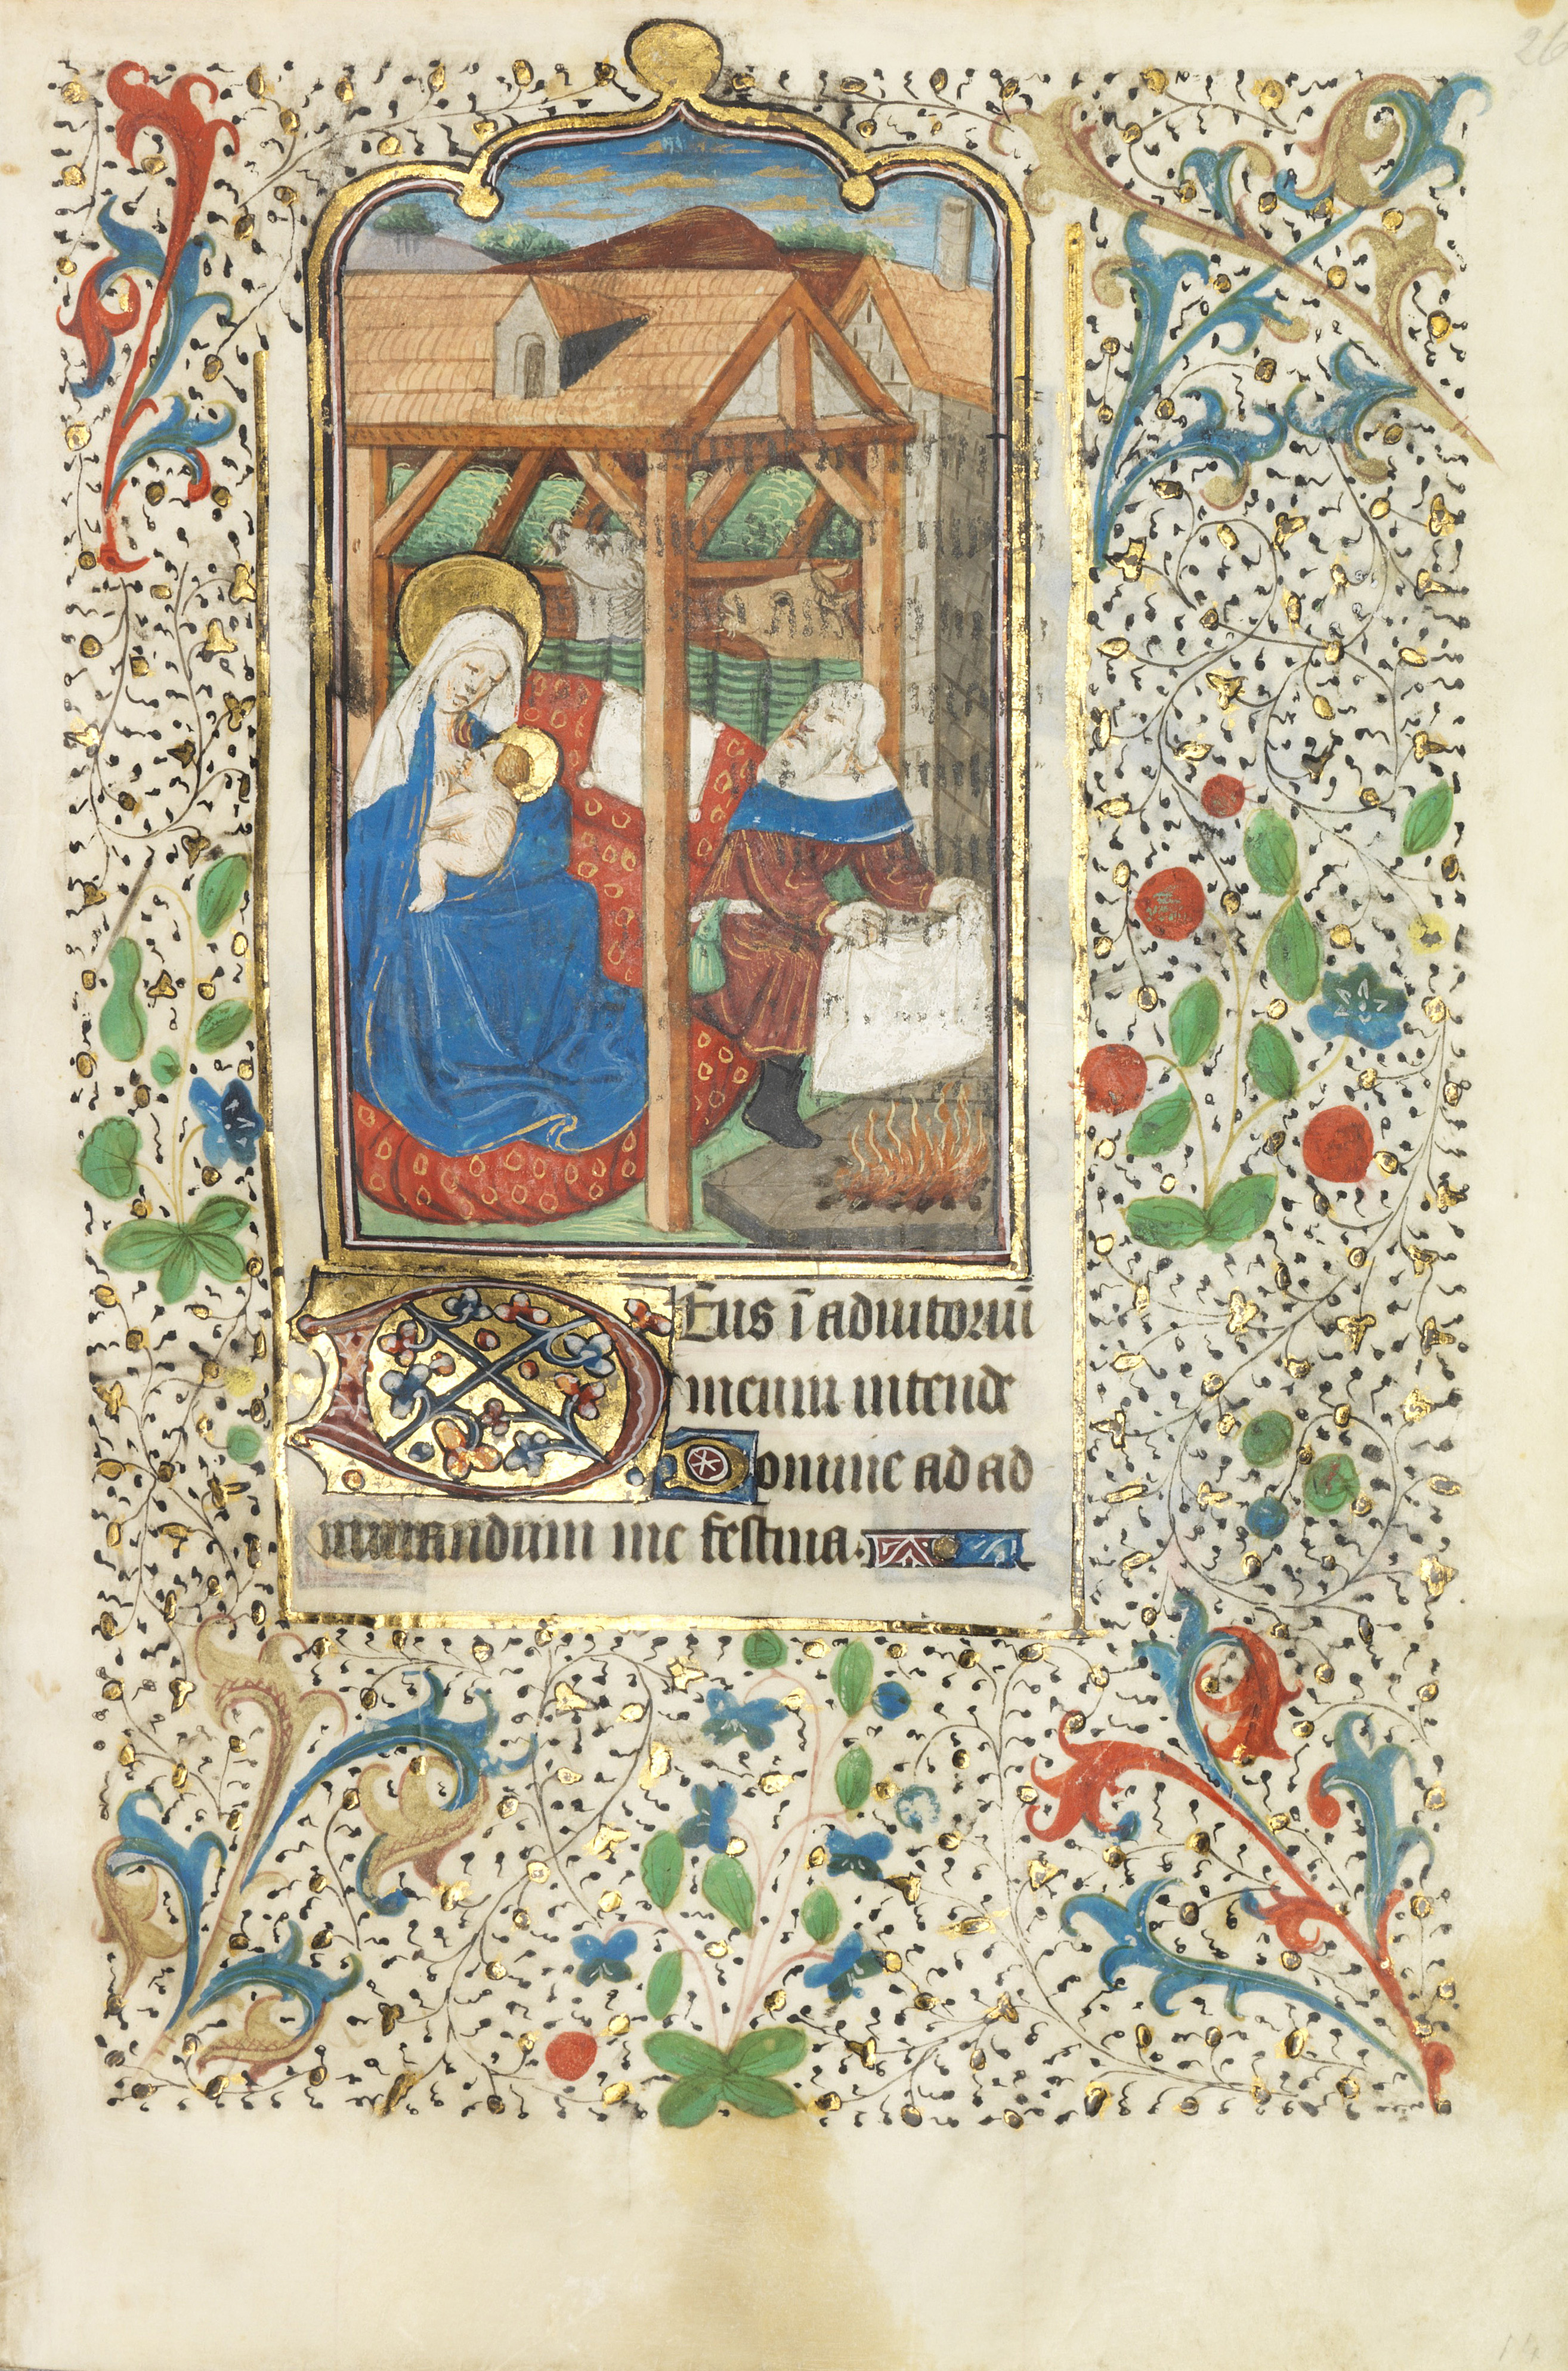 Deus ī adiutoriū
meum intende
Domine ad ad
iuuandum me festina.
26
14